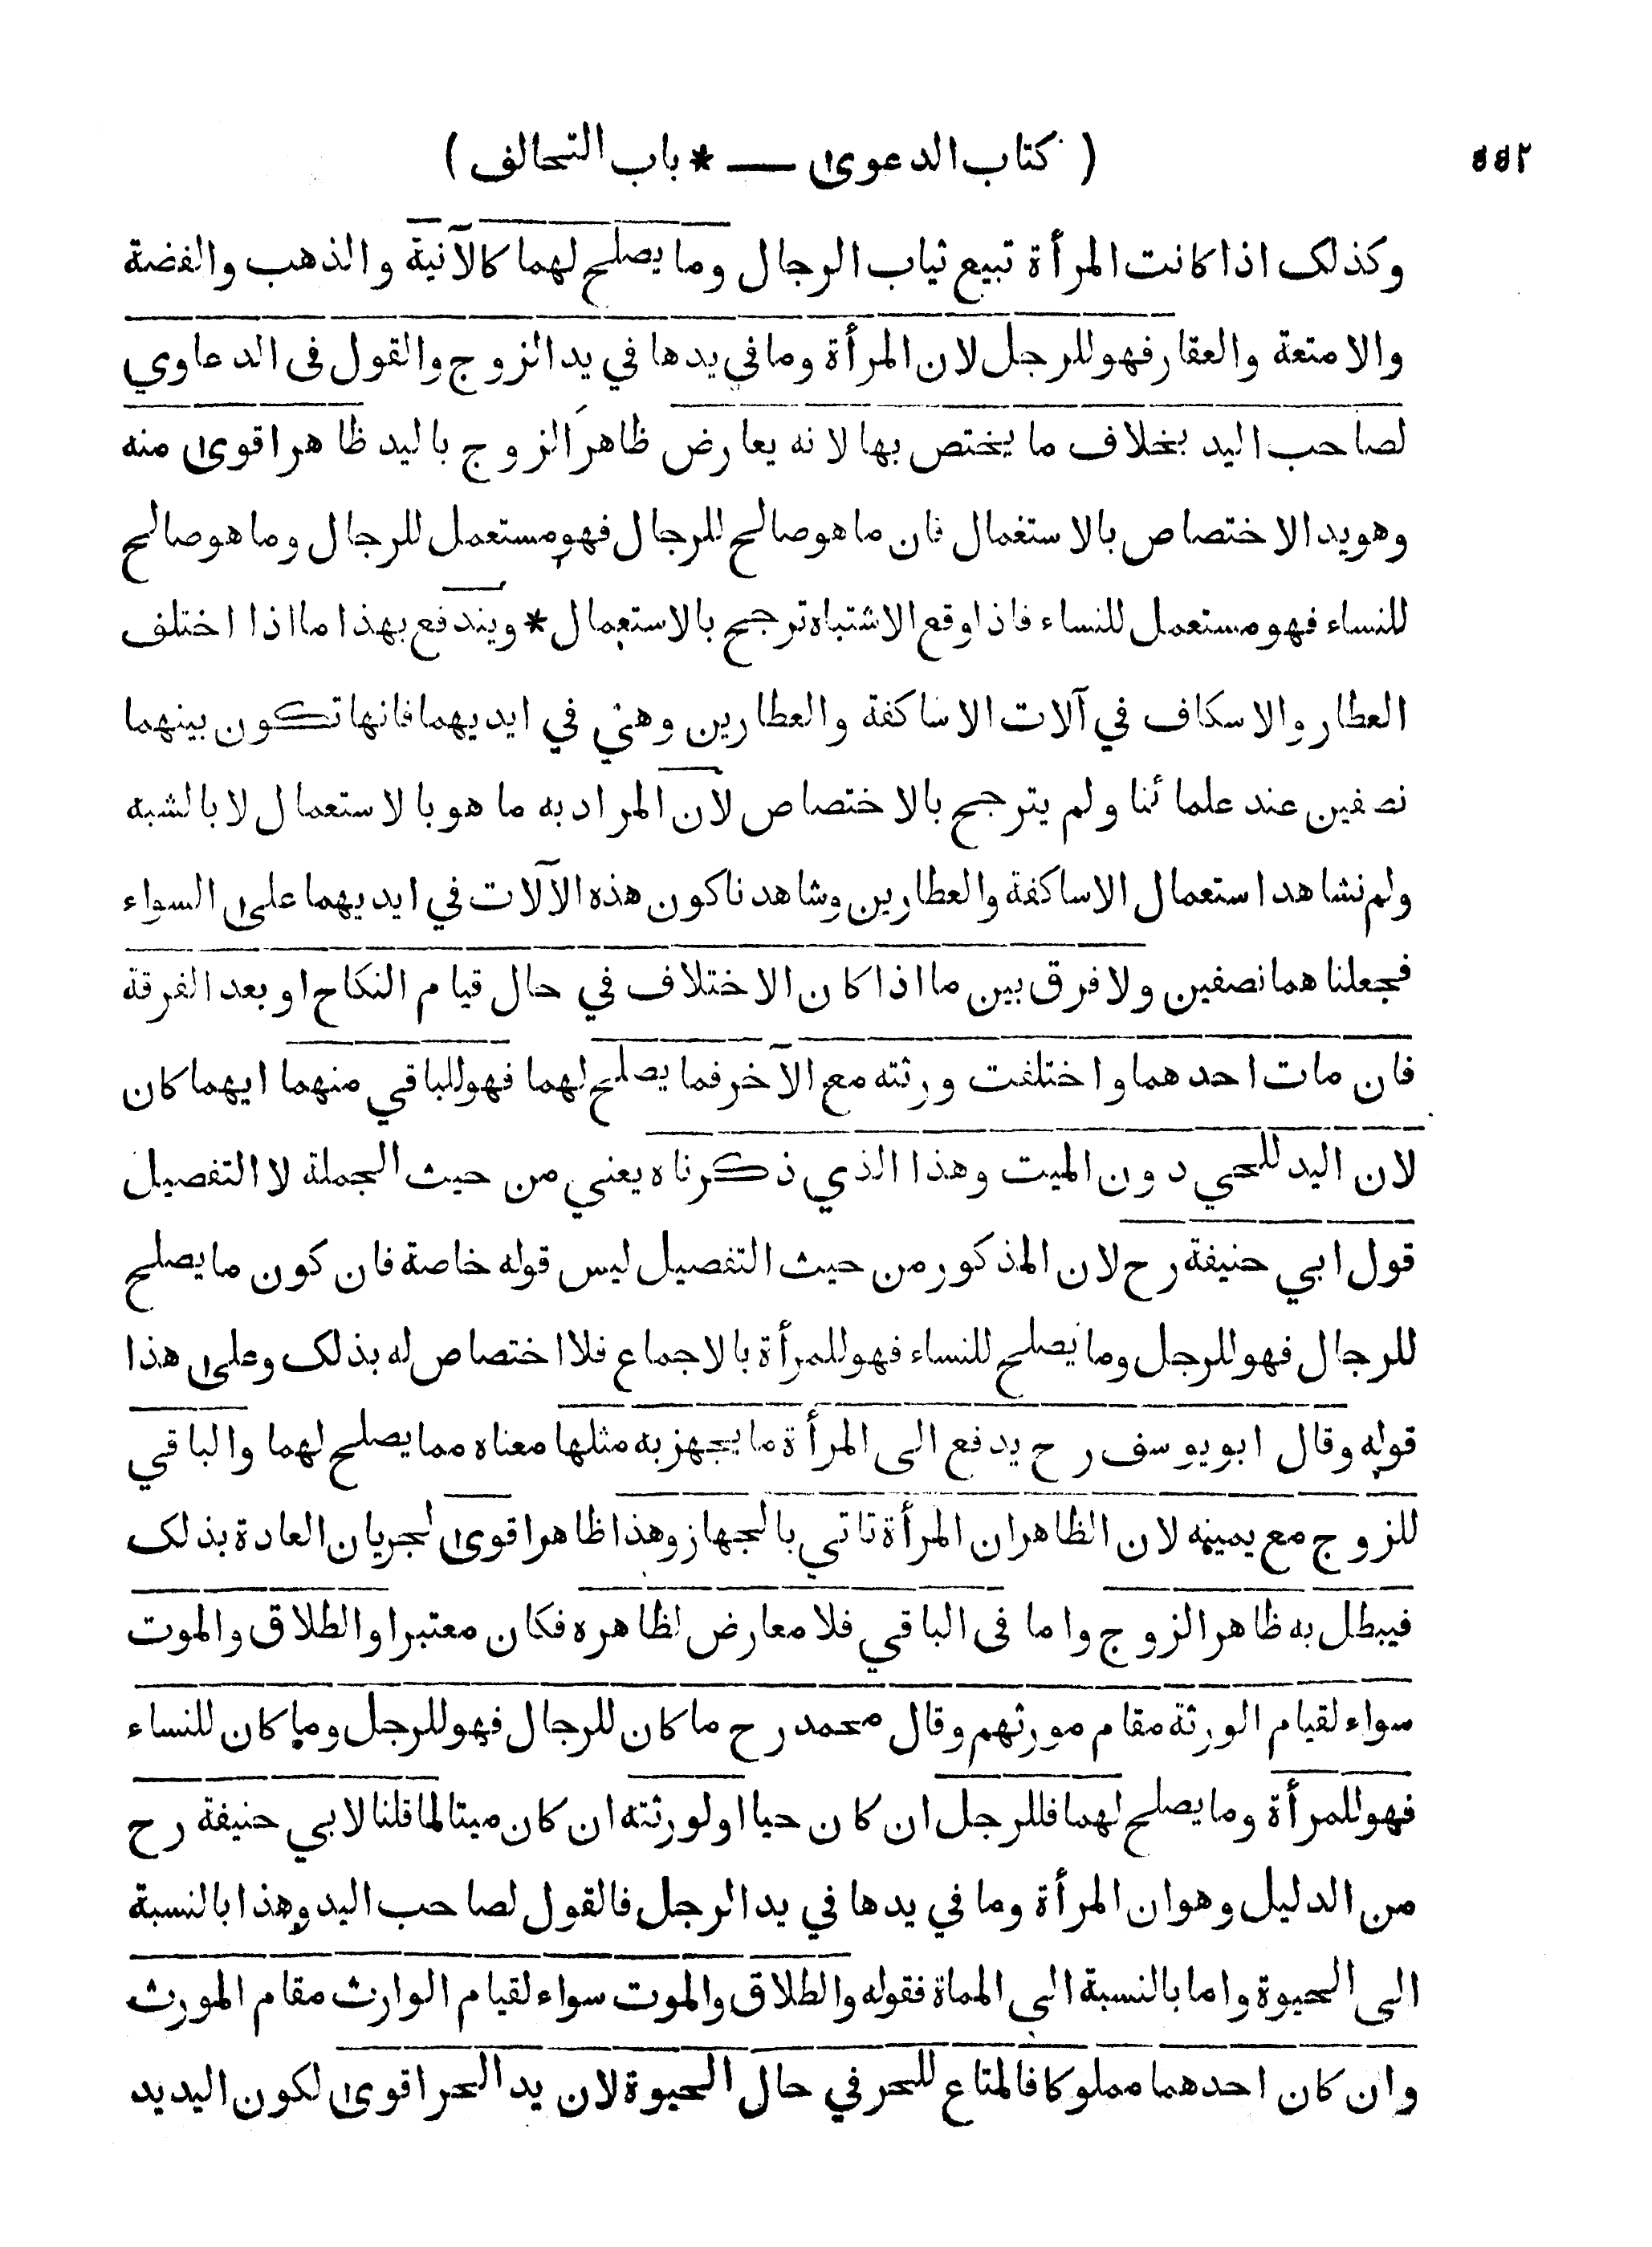 ٥٥٢
( كتاب الدعوى — * باب التحالف )
وكذلك اذا كانت المرأة تبيع ثياب الرجال وما يصلح لهما كالآنية والذهب والفضة
والامتعة والعقار فهو للرجل لان المرأة وما في يدها في يد الزوج والقول فى الدعاوي
لصاحب اليد بخلاف ما يختص بها لانه يعارض ظاهر الزوج باليد ظاهر اقوى منه
وهويد الاختصاص بالاستعمال فان ما هو صالح للرجال فهو مستعمل للرجال وما هو صالح
للنساء فهو مستعمل للنساء فاذا وقع الاشتباه ترجح بالاستعمال * ويندفع بهذا ما اذا اختلف
العطار والاسكاف في آلات الاساكفة والعطارين وهي في ايديهما فانها تكون بينهما
نصفين عند علمائنا ولم يترجح بالاختصاص لان المراد به ما هو بالاستعمال لا بالشبه
ولم نشاهد استعمال الاساكفة والعطارين وشاهدنا كون هذه الآلات في ايديهما على السواء
فجعلناهما نصفين ولا فرق بين ما اذا كان الاختلاف في حال قيام النكاح او بعد الفرقة
فان مات احدهما واختلفت ورثته مع الآخر فما يصلح لهما فهو للباقي منهما ايهما كان
لان اليد للحي دون الميت وهذا الذي ذكرناه يعني من حيث الجملة لا التفصيل
قول ابي حنيفة رح لان المذكور من حيث التفصيل ليس قوله خاصة فان كون ما يصلح
للرجال فهو للرجل وما يصلح للنساء فهو للمرأة بالاجماع فلا اختصاص له بذلك وعلى هذا
قوله وقال ابو يوسف رح يدفع الى المرأة ما يجهز به مثلها معناه مما يصلح لهما والباقي
للزوج مع يمينه لان الظاهران المرأة تاتي بالجهاز وهذا ظاهر اقوى لجريان العادة بذلك
فيبطل به ظاهر الزوج واما فى الباقي فلا معارض لظاهره فكان معتبرا والطلاق والموت
سواء لقيام الورثة مقام مورثهم وقال محمد رح ما كان للرجال فهو للرجل وما كان للنساء
فهو للمرأة وما يصلح لهما فللرجل ان كان حيا او لورثته ان كان ميتا لما قلنا لابي حنيفة رح
من الدليل وهو ان المرأة وما في يدها في يد الرجل فالقول لصاحب اليد وهذا بالنسبة
الى الحيوة واما بالنسبة الى المماة فقوله والطلاق والموت سواء لقيام الوارث مقام المورث
وان كان احدهما مملوكا فالمتاع للحر في حال الحيوة لان يد الحر اقوى لكون اليد يد